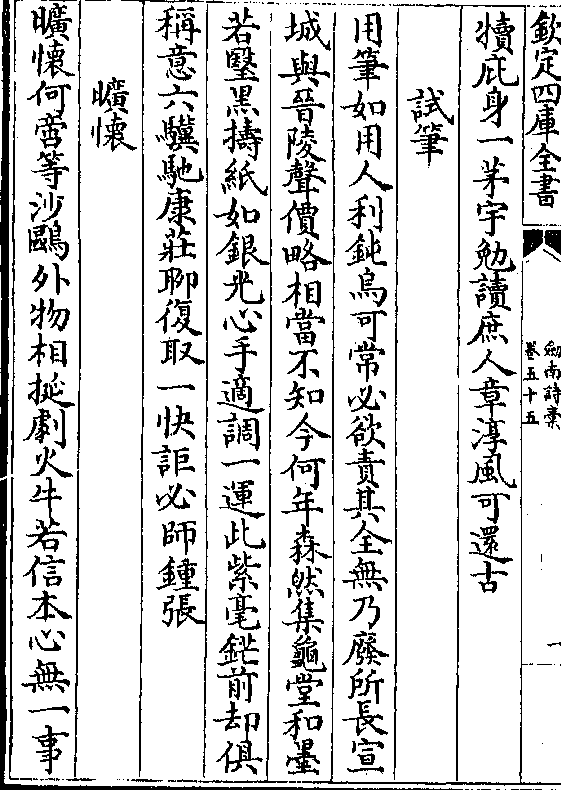 欽定四庫全書
劒南詩稾
卷五十五
一
犢庇身一茅宇勉讀庶人章淳風可還古
試筆
用筆如用人利鈍烏可常必欲責其全無乃廢所長宣
城與晉陵聲價略相當不知今何年森然集龜堂和墨
若醫黑擣紙如銀光心手適調一運此紫毫鋩前却俱
稱意六驥馳康莊聊復取一快詎必師鍾張
曠懐
曠懐何啻等沙鷗外物相挻劇火牛若信本心無一事